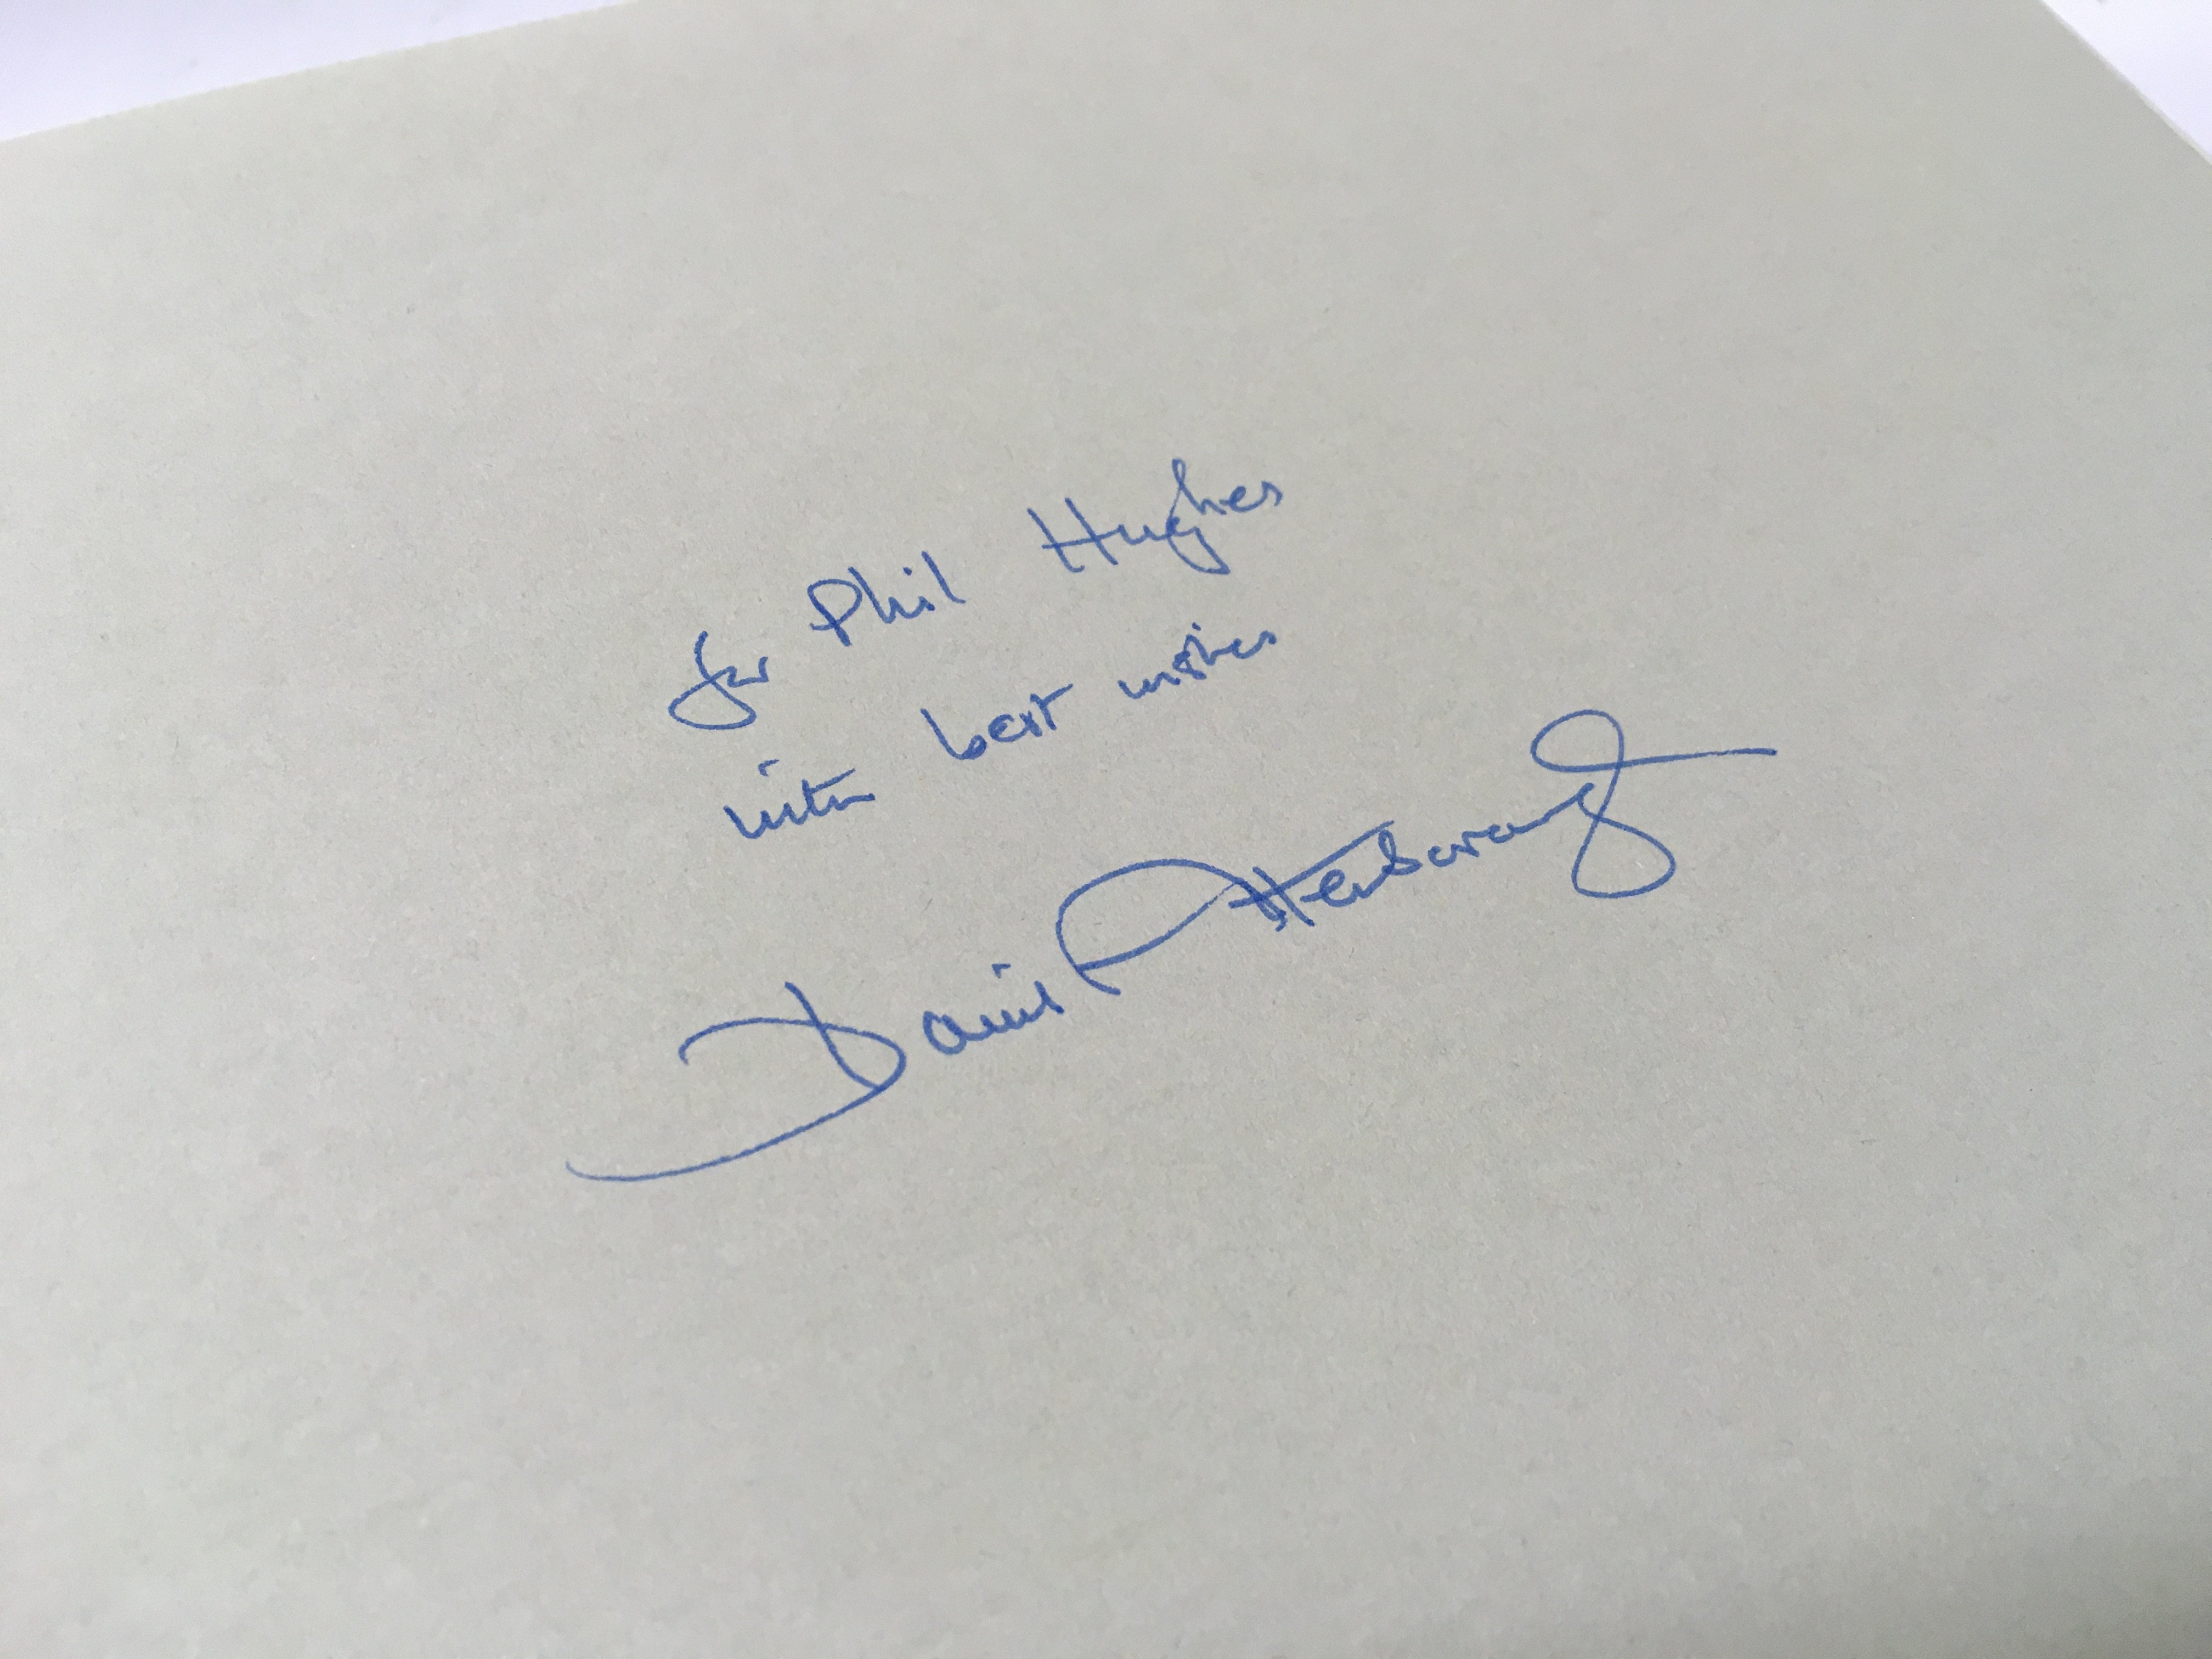 for Phil Hughes
with best wishes
David Attenborough